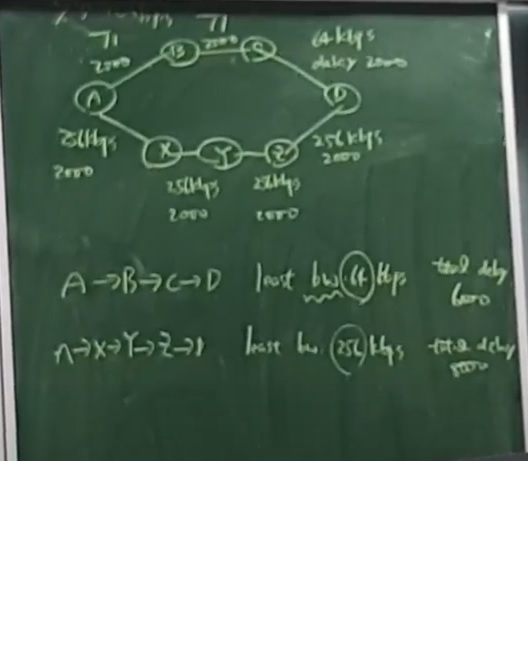 T1
T1
64 kbps
2000
2000
delay 2000
B
C
A
D
256kbps
2000
X
Y
Z
256kbps
2000
256kbps
2000
256kbps
2000
A→B→C→D least bw 64 kbps total delay
6000
A→X→Y→Z→D least bw. 256 kbps total delay
8000